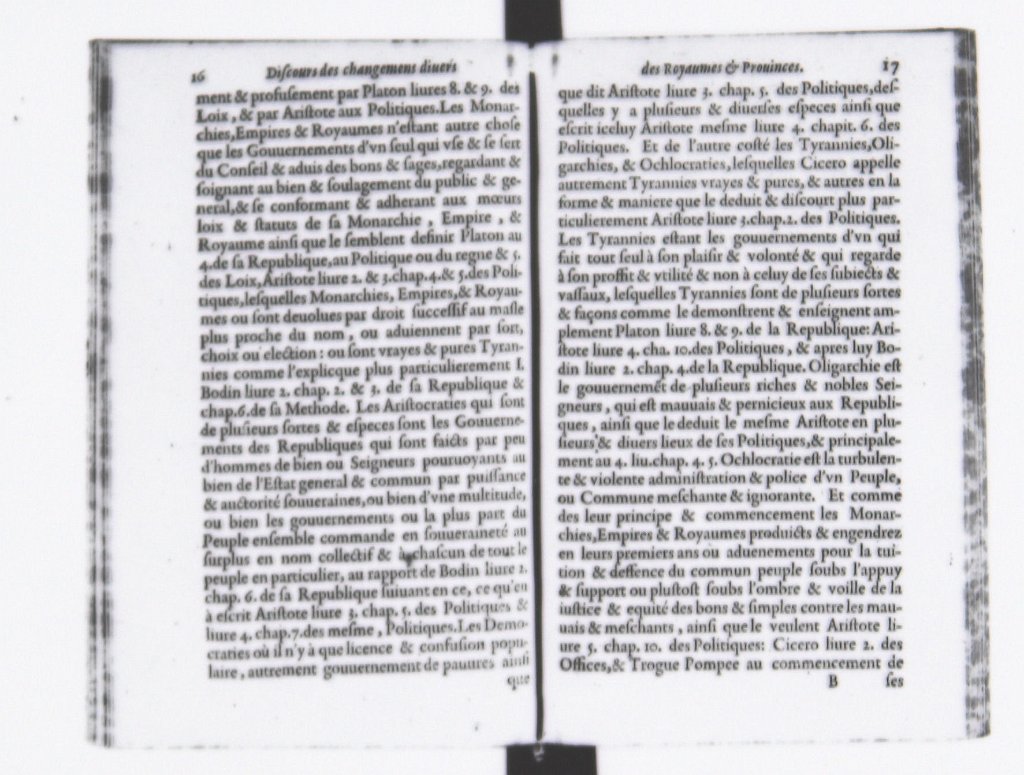 16 Diſcours des changemens diuers
ment & profuſement par Platon liures 8. & 9. des
Loix, & par Ariſtote aux Politiques. Les Monar-
chies, Empires & Royaumes n'eſtant autre choſe
que les Gouuernements d'vn ſeul qui vſe & ſe ſert
du Conſeil & aduis des bons & ſages, regardant &
ſoignant au bien & ſoulagement du public & ge-
neral, & ſe conformant & adherant aux mœurs
loix & ſtatuts de ſa Monarchie, Empire, &
Royaume ainſi que le ſemblent definir Platon au
4. de ſa Republique, au Politique ou du regne & 5.
des Loix, Ariſtote liure 2. & 3. chap. 4. & 5. des Poli-
tiques, leſquelles Monarchies, Empires, & Royau-
mes ou ſont deuolues par droit ſucceſſif au maſle
plus proche du nom, ou aduiennent par ſort,
choix ou election: ou ſont vrayes & pures Tyran-
nies comme l'explicque plus particulierement I.
Bodin liure 2. chap. 2. & 3. de ſa Republique &
chap. 6. de ſa Methode. Les Ariſtocraties qui ſont
de pluſieurs ſortes & eſpeces ſont les Gouuerne-
ments des Republiques qui ſont faicts par peu
d'hommes de bien ou Seigneurs pouruoyants au
bien de l'Eſtat general & commun par puiſſance
& auctorité ſouueraines, ou bien d'vne multitude,
ou bien les gouuernements ou la plus part du
Peuple enſemble commande en ſouueraineté au
ſurplus en nom collectif & à chaſcun de tout le
peuple en particulier, au rapport de Bodin liure 2.
chap. 6. de ſa Republique ſuiuant en ce, ce qu'en
à eſcrit Ariſtote liure 3. chap. 5. des Politiques &
liure 4. chap. 7. des meſme, Politiques. Les Demo-
craties où il n'y à que licence & confuſion popu-
laire, autrement gouuernement de pauures ainſi
que
des Royaumes & Prouinces. 17
que dit Ariſtote liure 3. chap. 5. des Politiques, deſ-
quelles y a pluſieurs & diuerſes eſpeces ainſi que
eſcrit iceluy Ariſtote meſme liure 4. chapit. 6. des
Politiques. Et de l'autre coſté les Tyrannies, Oli-
garchies, & Ochlocraties, leſquelles Cicero appelle
autrement Tyrannies vrayes & pures, & autres en la
forme & maniere que le deduit & diſcourt plus par-
ticulierement Ariſtote liure 3. chap. 2. des Politiques.
Les Tyrannies eſtant les gouuernements d'vn qui
fait tout ſeul à ſon plaiſir & volonté & qui regarde
à ſon proffit & vtilité & non à celuy de ſes ſubiects &
vaſſaux, leſquelles Tyrannies ſont de pluſieurs ſortes
& façons comme le demonſtrent & enſeignent am-
plement Platon liure 8. & 9. de la Republique: Ari-
ſtote liure 4. cha. 10. des Politiques, & apres luy Bo-
din liure 2. chap. 4. de la Republique. Oligarchie eſt
le gouuernemēt de pluſieurs riches & nobles Sei-
gneurs, qui eſt mauuais & pernicieux aux Republi-
ques, ainſi que le deduit le meſme Ariſtote en plu-
ſieurs & diuers lieux de ſes Politiques, & principale-
ment au 4. liu. chap. 4. 5. Ochlocratie eſt la turbulen-
te & violente adminiſtration & police d'vn Peuple,
ou Commune meſchante & ignorante. Et comme
des leur principe & commencement les Monar-
chies, Empires & Royaumes produicts & engendrez
en leurs premiers ans ou aduenements pour la tui-
tion & deffence du commun peuple ſoubs l'appuy
& ſupport ou pluſtoſt ſoubs l'ombre & voille de la
iuſtice & equité des bons & ſimples contre les mau-
uais & meſchants, ainſi que le veulent Ariſtote li-
ure 5. chap. 10. des Politiques: Cicero liure 2. des
Offices, & Trogue Pompee au commencement de
B ſes